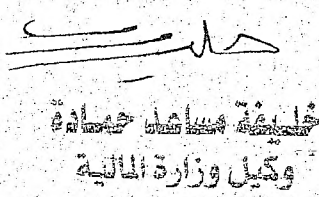 خليفة مساعد حمادة
وكيل وزارة المالية